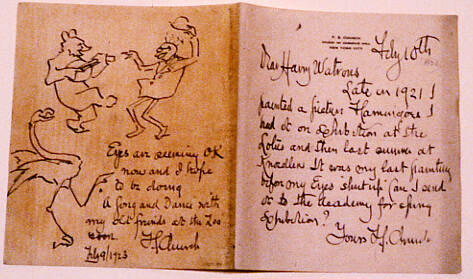 Eyes are seeming OK
now and I hope
to be doing
A Song and Dance with
my old friends at the Zoo
soon. F.S. Church
Feb 9/1923
F. S. CHURCH
NEW YORK CITY
Feby 10th
Dear Harry Watrous
Late in 1921 I
painted a picture Flamingoes I
had it on exhibition at the
Lotos and then last summer at
Knoedler It was my last painting
before my Eyes shut up Can I send
it to the Academy for spring
Exhibition?
Yours F.S. Church